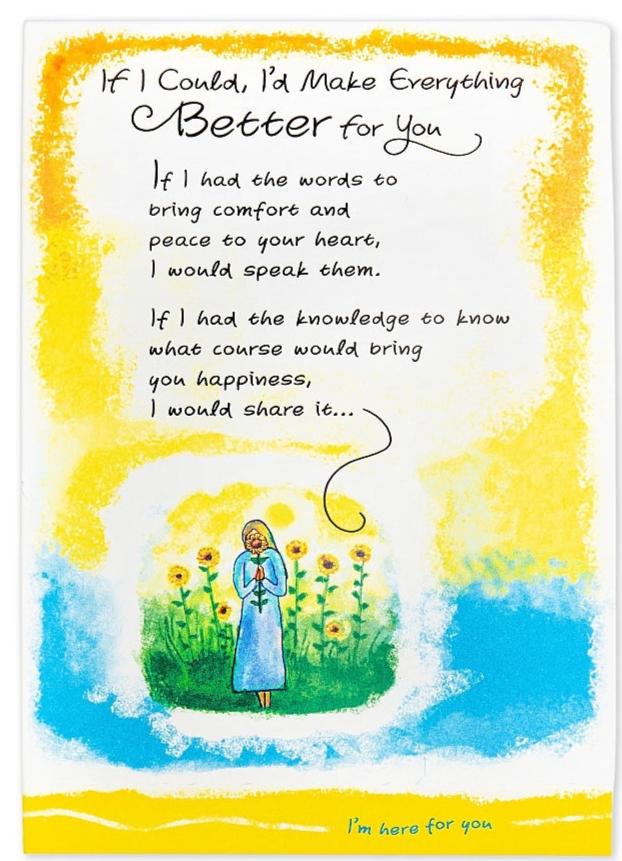 If I Could, I'd Make Everything
Better for You
If I had the words to
bring comfort and
peace to your heart,
I would speak them.
If I had the knowledge to know
what course would bring
you happiness,
I would share it...
I'm here for you